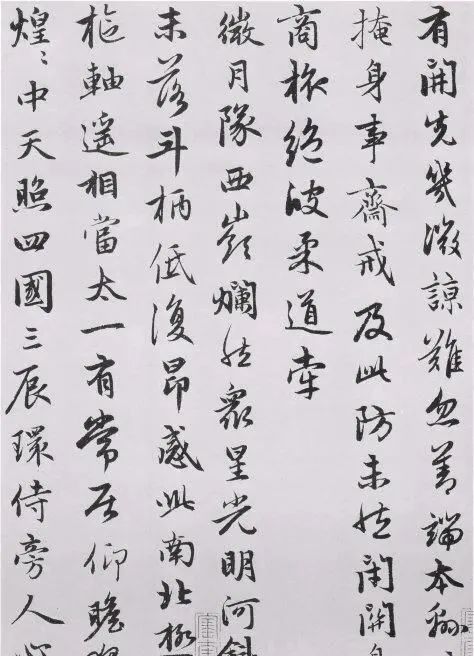 有開先幾微諒難忽善端本綿
掩身事齋戒及此防未然閉關
商旅絕彼柔道牽
微月隊西嶺爛然衆星光明河斜
未落斗柄低復昂感此南北極
樞軸遥相當太一有常居仰瞻
煌〻中天照四國三辰環侍旁人心